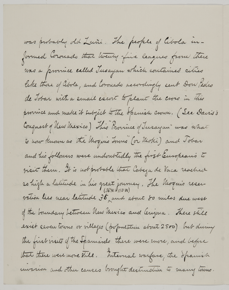 was probably old Zuñi. The people of Cibola in-
formed Coronado that twenty five leagues from there
was a province called Tusayan which contained cities
like those of Cibola, and Coronado accordingly sent Don Pedro
de Tobar with a small escort to plant the cross in this
province and make it subject to the Spanish crown. (See Davis's
Conquest of New Mexico) This "Province of Tusayan" was what
is now known as the Moquis towns (or Moki) and Tobar
and his followers were undoubtedly the first Europeans to
visit them. It is not probable that Cabeza de Vaca reached
so high a latitude in his great journey. The Moquis reser-
vation lies near latitude 36, and about 50 miles due west
of the boundary between New Mexico and Arizona. There still
exist seven towns or villages (population about 2500) but during
the first visit of the Spaniards there were more, and before
that there were more still. Internal warfare, the Spanish
invasion and other causes brought destruction to many towns